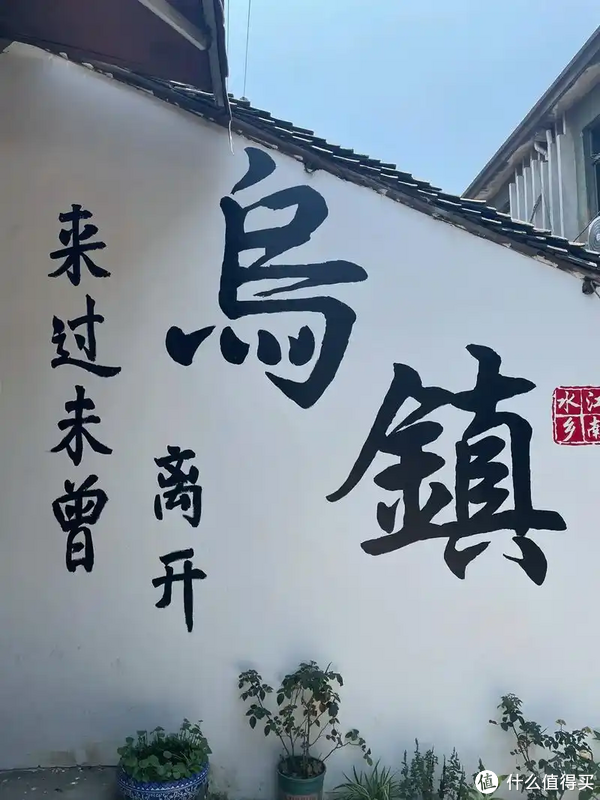 烏鎮
江南
水乡
来过未曾
离开
值 什么值得买